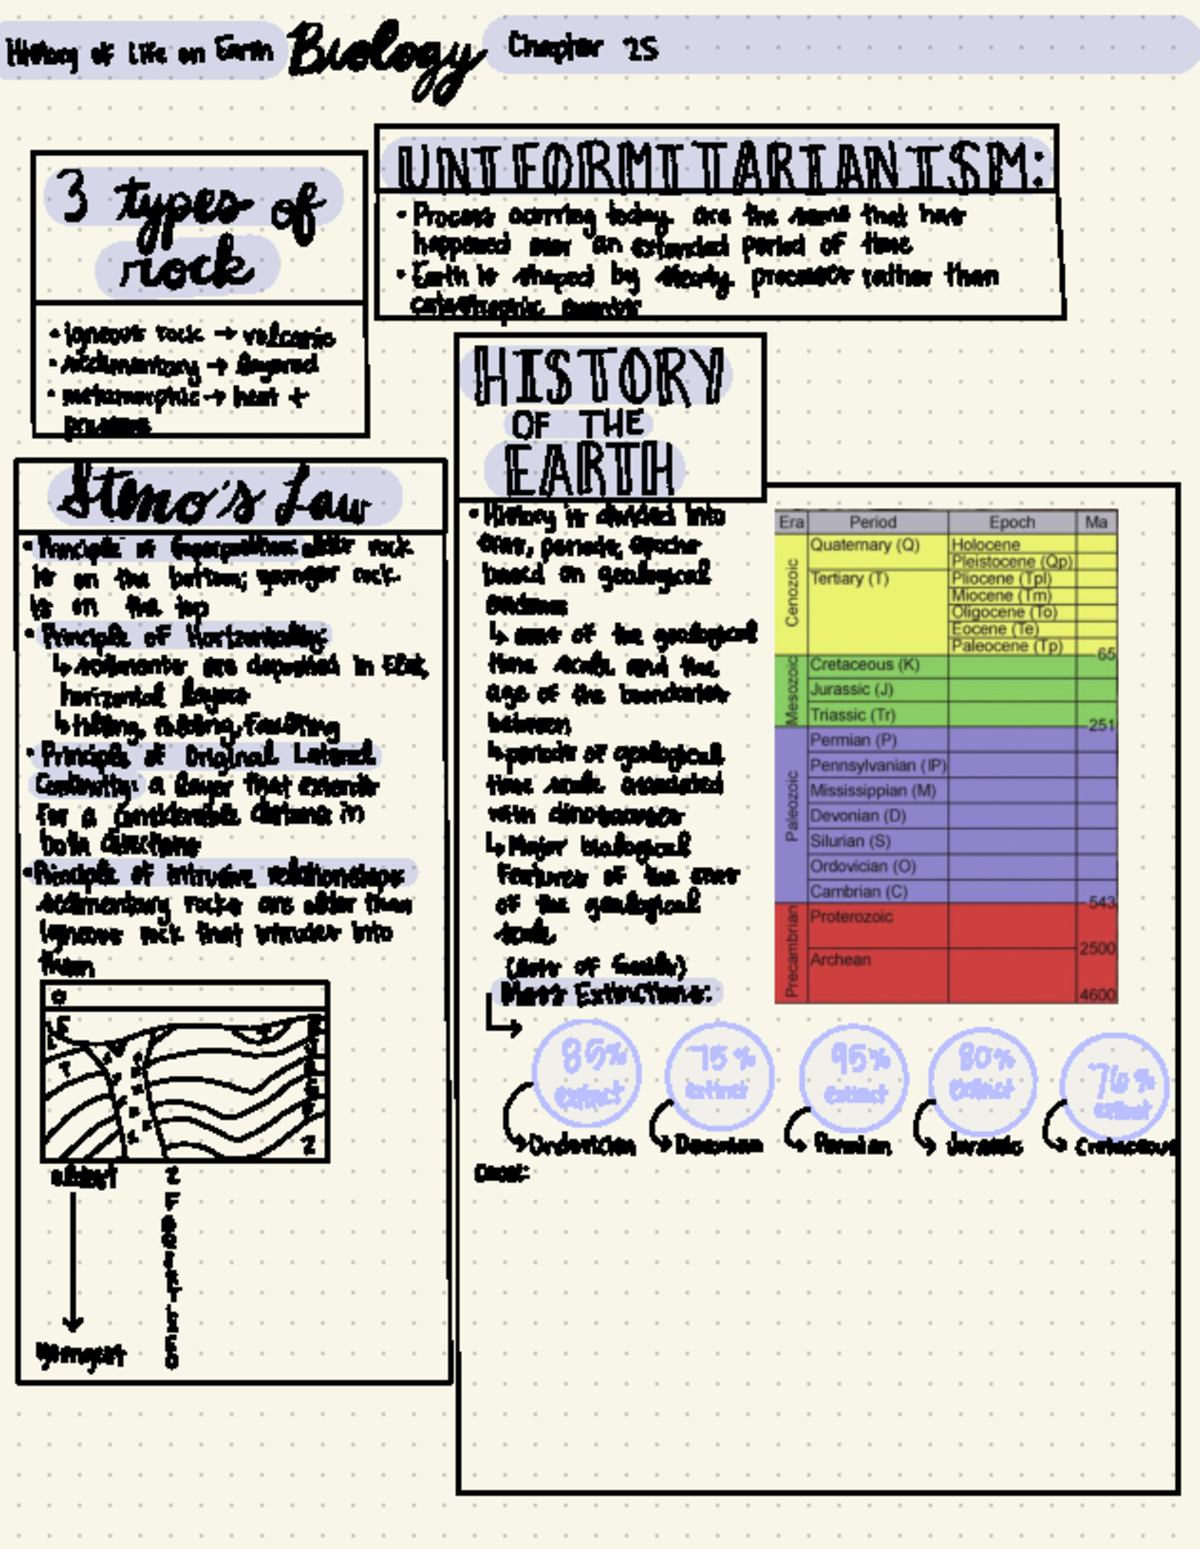 History of Life on Earth Biology Chapter 25
3 types of
rock
• igneous rock → volcanic
• sedimentary → layered
• metamorphic → heat +
pressure
UNIFORMITARIANISM:
• Process occurring today are the same that have
happened over an extended period of time
• Earth is shaped by steady processes rather than
catastrophic events
Steno's Law
• Principle of Superposition: older rock
is on the bottom; younger rock
is on the top
• Principle of Horizontality
↳ sediments are deposited in flat,
horizontal layers
↳ tilting, folding, faulting
• Principle of Original Lateral
Continuity: a layer that extends
for a considerable distance in
both directions
• Principle of intrusive relationships
sedimentary rocks are older than
igneous rock that intrudes into
them
oldest
youngest
HISTORY
OF THE
EARTH
• History is divided into
eras, periods, epochs
based on geological
evidence
↳ eras of the geological
time scale and the
age of the boundaries
between
↳ periods of geological
time scale associated
with dinosaurs
↳ Major biological
features of the eras
of the geological
scale
Mass Extinctions:
Era Period Epoch Ma
Cenozoic
Quaternary (Q) Holocene
Pleistocene (Qp)
Tertiary (T) Pliocene (Tpl)
Miocene (Tm)
Oligocene (To)
Eocene (Te)
Paleocene (Tp)
65
Mesozoic
Cretaceous (K)
Jurassic (J)
Triassic (Tr)
251
Paleozoic
Permian (P)
Pennsylvanian (IP)
Mississippian (M)
Devonian (D)
Silurian (S)
Ordovician (O)
Cambrian (C)
543
Precambrian
Proterozoic
2500
Archean
4600
85% extinct
75% extinct
95% extinct
80% extinct
76% extinct
Ordovician Devonian Permian Jurassic Cretaceous
Cause: